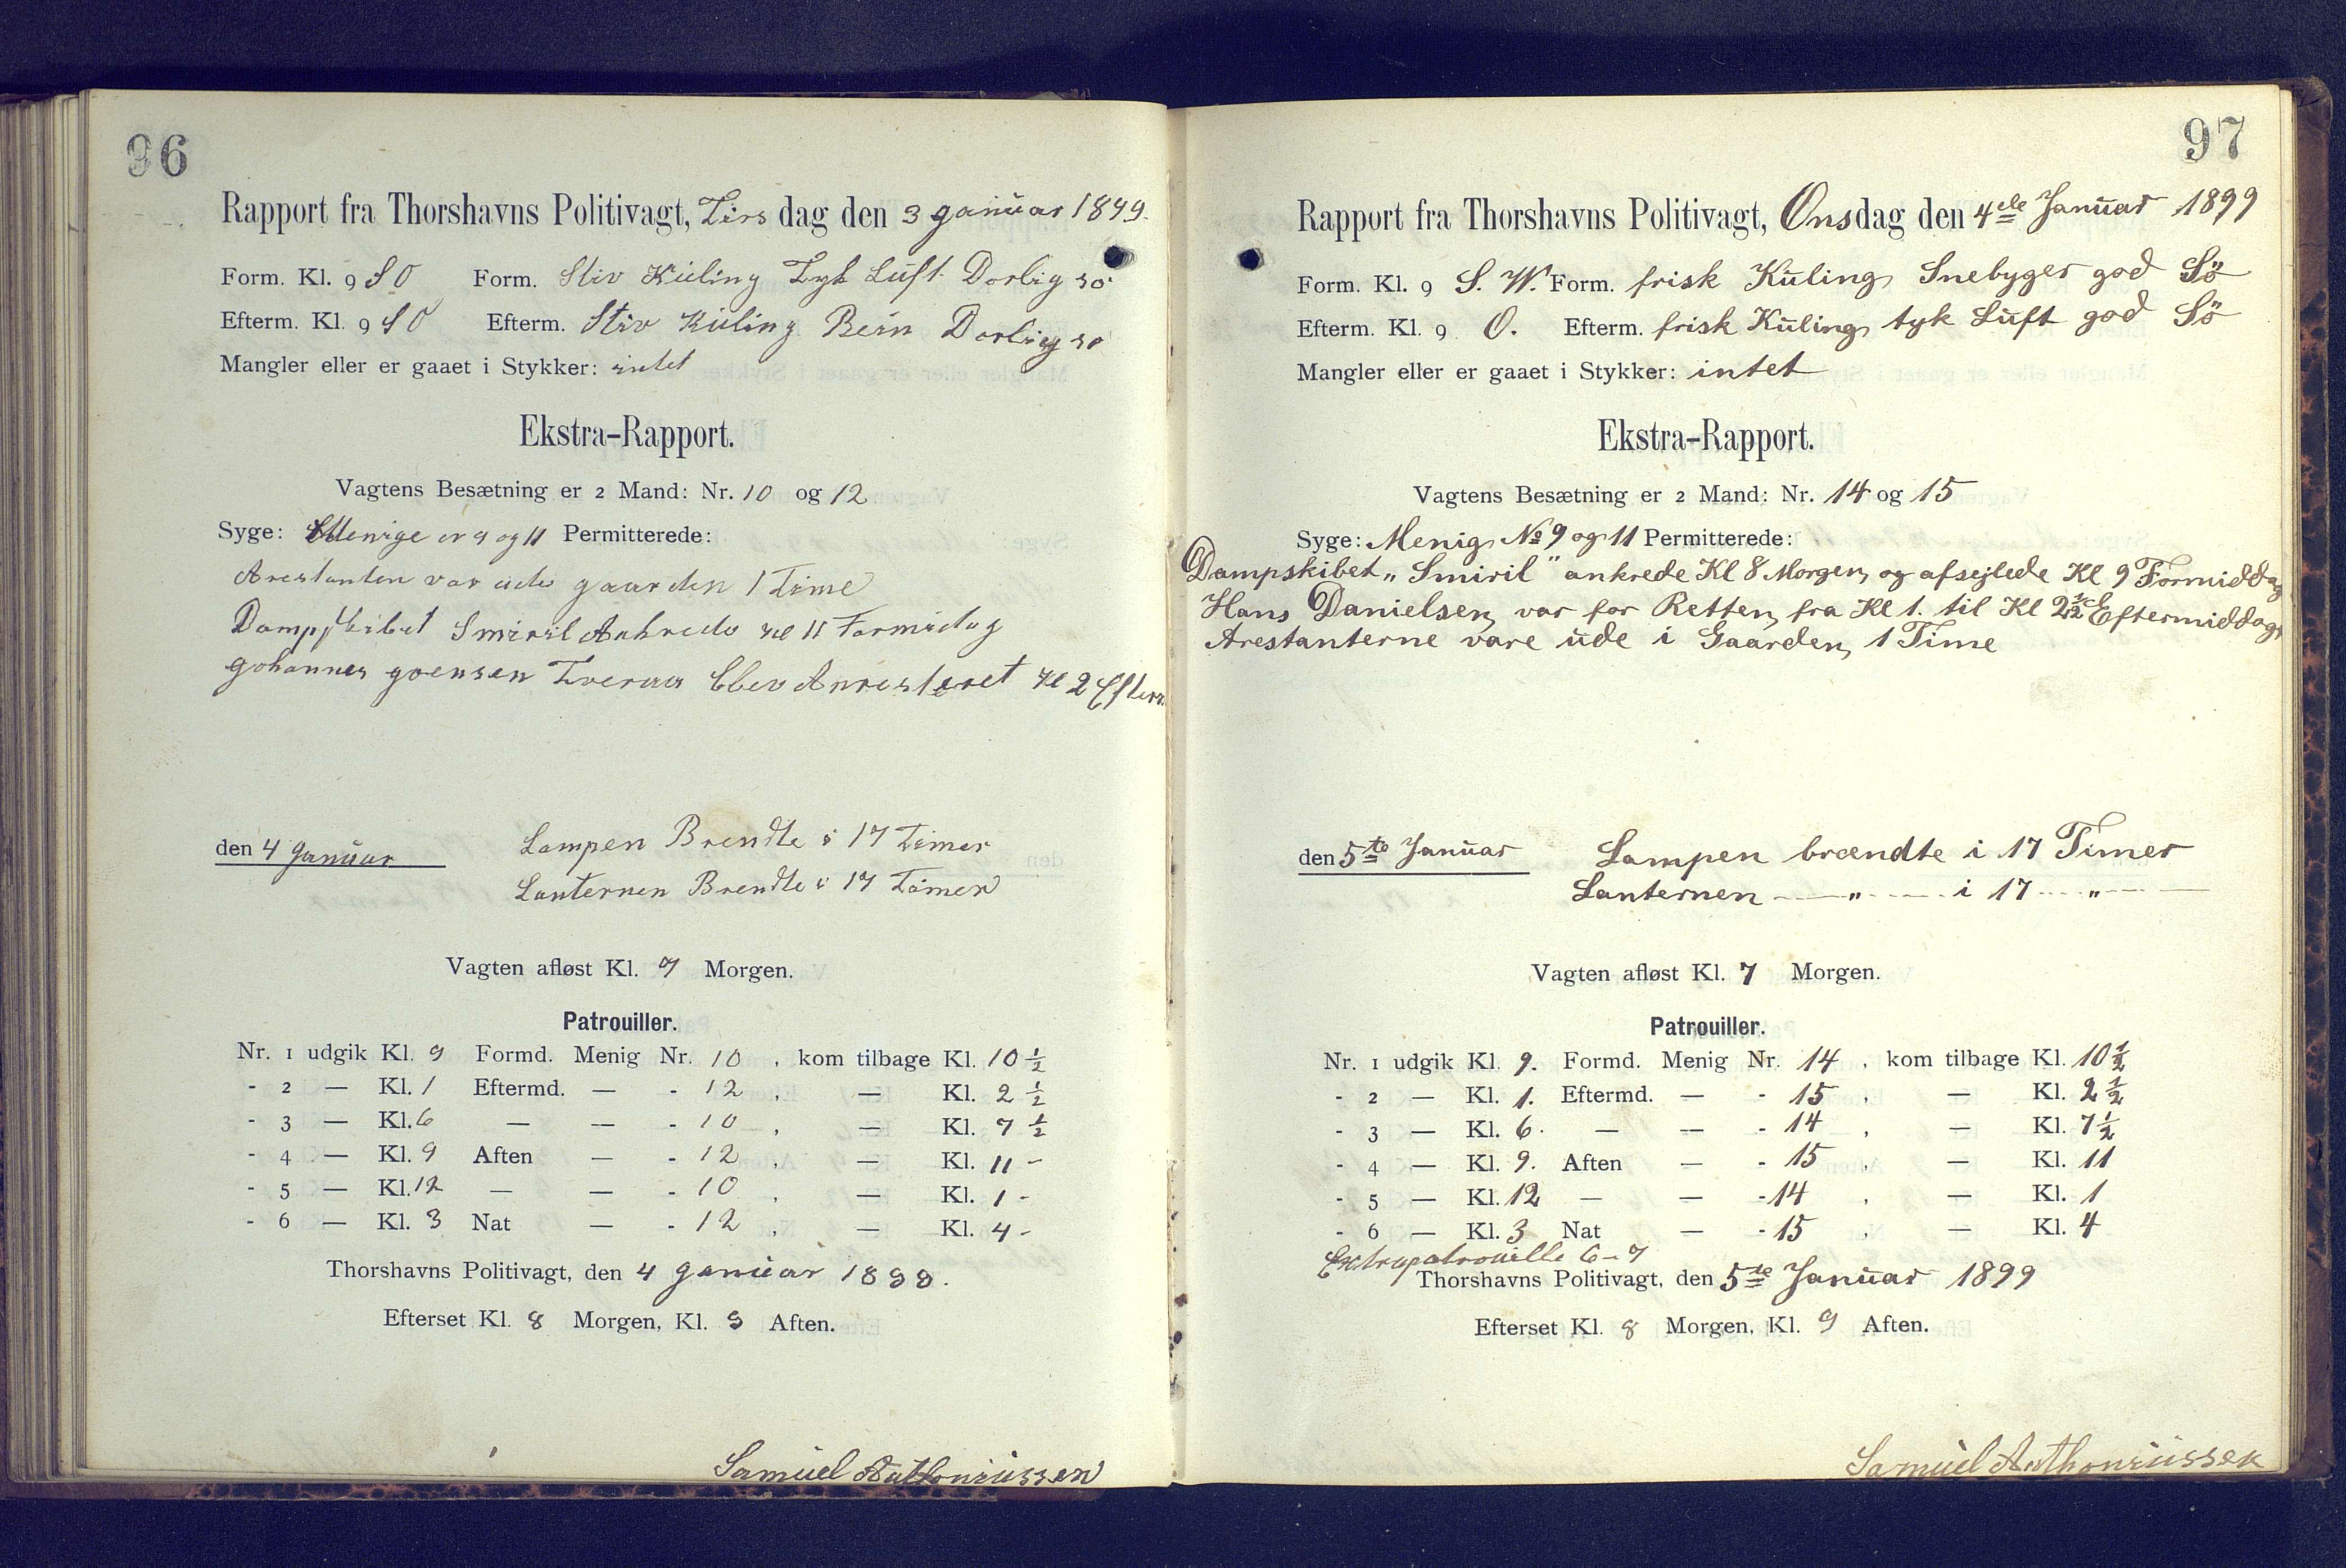 96
Rapport fra Thorshavns Politivagt, Tirsdag den 3 Januar 1899.
Form. Kl. 9 SO Form. Stiv Kuling Tyk Luft Dorlig so
Efterm. Kl. 9 SO Efterm. Stiv Kuling Rein Dorlig so
Mangler eller er gaaet i Stykker: intet
Ekstra-Rapport.
Vagtens Besætning er 2 Mand: Nr. 10 og 12
Syge: Menige nr 9 og 11 Permitterede:
Arestanten var ude gaarden 1 Time
Dampskibet Smiril Ankrede Kl 11 Formidag
Johannes Joensen Tveraa blev Anresteret Kl 2 Efterm.
den 4 Januar Lampen Brendte i 17 Timer
Lanternen Brendte i 17 Timer
Vagten afløst Kl. 7 Morgen.
Patrouiller.
Nr. 1 udgik Kl. 9 Formd. Menig Nr. 10 , kom tilbage Kl. 10 ½
- 2 — Kl. 1 Eftermd. — - 12 , — Kl. 2 ½
- 3 — Kl. 6 — — - 10 , — Kl. 7 ½
- 4 — Kl. 9 Aften — - 12 , — Kl. 11 -
- 5 — Kl. 12 — — - 10 , — Kl. 1 -
- 6 — Kl. 3 Nat — - 12 , — Kl. 4 -
Thorshavns Politivagt, den 4 Januar 1899.
Efterset Kl. 8 Morgen, Kl. 9 Aften.
Samuel Anthoniussen
97
Rapport fra Thorshavns Politivagt, Onsdag den 4de Januar 1899
Form. Kl. 9 S. W. Form. frisk Kuling Snebyger god Sö
Efterm. Kl. 9 O. Efterm. frisk Kuling tyk Luft god Sö
Mangler eller er gaaet i Stykker: intet
Ekstra-Rapport.
Vagtens Besætning er 2 Mand: Nr. 14 og 15
Syge: Menig No 9 og 11 Permitterede:
Dampskibet „Smiril" ankrede Kl 8 Morgen og afsejlede Kl 9 Formiddag
Hans Danielsen var for Retten fra Kl 1. til Kl 2½ Eftermiddag
Arestanterne vare ude i Gaarden 1 Time
den 5te Januar Lampen brændte i 17 Timer
Lanternen — „ — i 17 — „ —
Vagten afløst Kl. 7 Morgen.
Patrouiller.
Nr. 1 udgik Kl. 9. Formd. Menig Nr. 14 , kom tilbage Kl. 10 ½
- 2 — Kl. 1. Eftermd. — - 15 , — Kl. 2 ½
- 3 — Kl. 6. — — - 14 , — Kl. 7 ½
- 4 — Kl. 9. Aften — - 15 , — Kl. 11
- 5 — Kl. 12 — — - 14 , — Kl. 1
- 6 — Kl. 3 Nat — - 15 , — Kl. 4
Extrapatrouille 6-7
Thorshavns Politivagt, den 5te Januar 1899
Efterset Kl. 8 Morgen, Kl. 9 Aften.
Samuel Anthoniussen